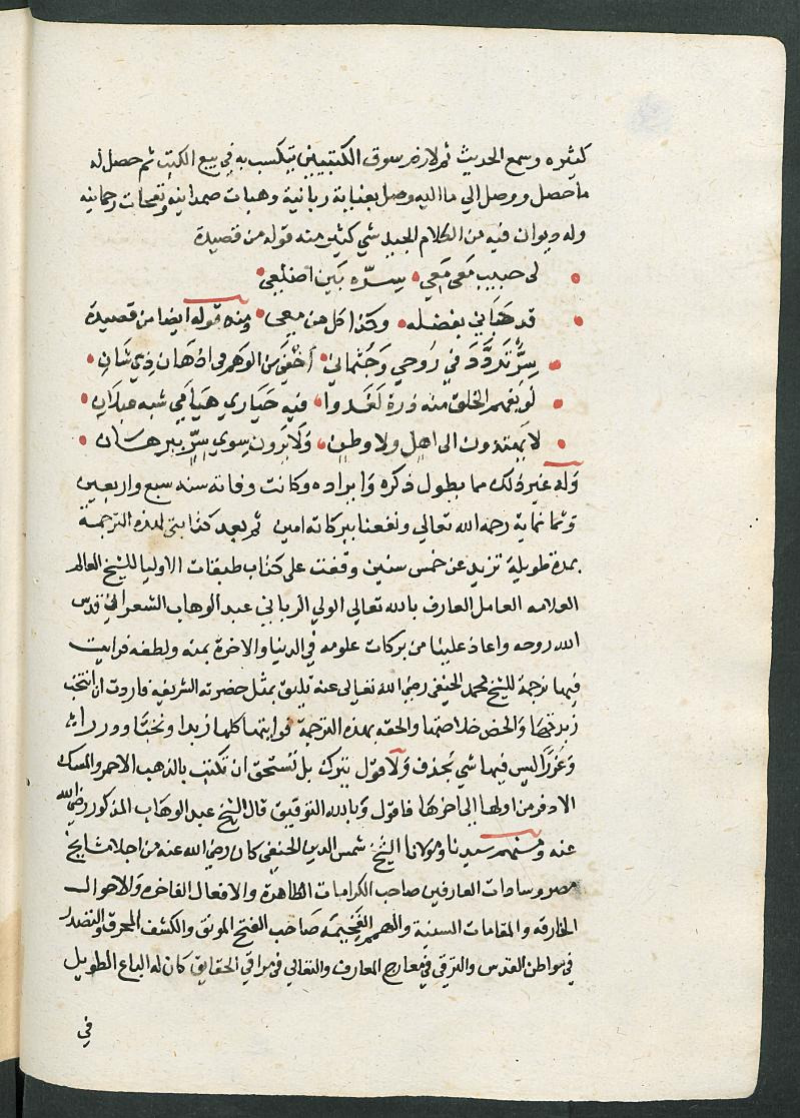 كثيره وسمع الحديث ثم لازم سوق الكتبيين يتكسب به في بيع الكتب ثم حصل له
ما حصل ووصل الي ما اليه وصل بعناية ربانية وهبات صمدانيه ونفحات رحمانيه
وله ديوان فيه من الكلام الجيد شي كثير منه قوله من قصيدة
لي حبيب معي معي سره بين اضلعي
قد حباني بفضله وكذا كل من يعي ومنه قوله ايضا من قصيدة
سر تردد في روحي وجثماني اخفي من الوهم في اذهان ذي شان
لو يفهم الخلق منه ذرة لغدوا فيه حياري هيامي شبه عبدان
لا يهتدون الى اهل ولا وطن ولا يرون سوي سر ببرهان
وله غير ذلك مما يطول ذكره وايراده وكانت وفاته سنه سبع واربعين
وثمانماية رحمه الله تعالي ونفعنا ببركاته امين ثم بعد كتابتي لهذه الترجمة
بمدة طويلة تزيد عن خمس سنين وقفت على كتاب طبقات الاوليا للشيخ العالم
العلامه العامل العارف بالله تعالي الولي الرباني عبد الوهاب الشعراني قدس
الله روحه واعاد علينا من بركات علومه في الدنيا والاخرة بمنه ولطفه فرايت
فيها ترجمة للشيخ محمد الحنفي رضي الله تعالي عنه تليق بمثل حضرته الشريفه فاردت ان انتخب
زبدتها والخص خلاصتها والحقه بهذه الترجمة فوايتها كلها زبدا ونخبا ودررا
وغررا ليس فيها شي يحذف ولا قول يترك بل تستحق ان تكتب بالذهب الاحمر والمسك
الادفر من اولها الي اخرها فاقول وبالله التوفيق قال الشيخ عبد الوهاب المذكور رضي الله
عنه ومنهم سيدنا ومولانا الشيخ شمس الدين الحنفي كان رضي الله عنه من اجلا مشايخ
مصر وسادات العارفين صاحب الكرامات الظاهرة والافعال الفاخره والاحوال
الخارقه والمقامات السنية والهمم الفخيمه صاحب الفتح المونق والكشف المخرق والتصدر
في مواطن القدس والترقي في معارج المعارف والتعالي في مراقي الحقايق كان له الباع الطويل
في